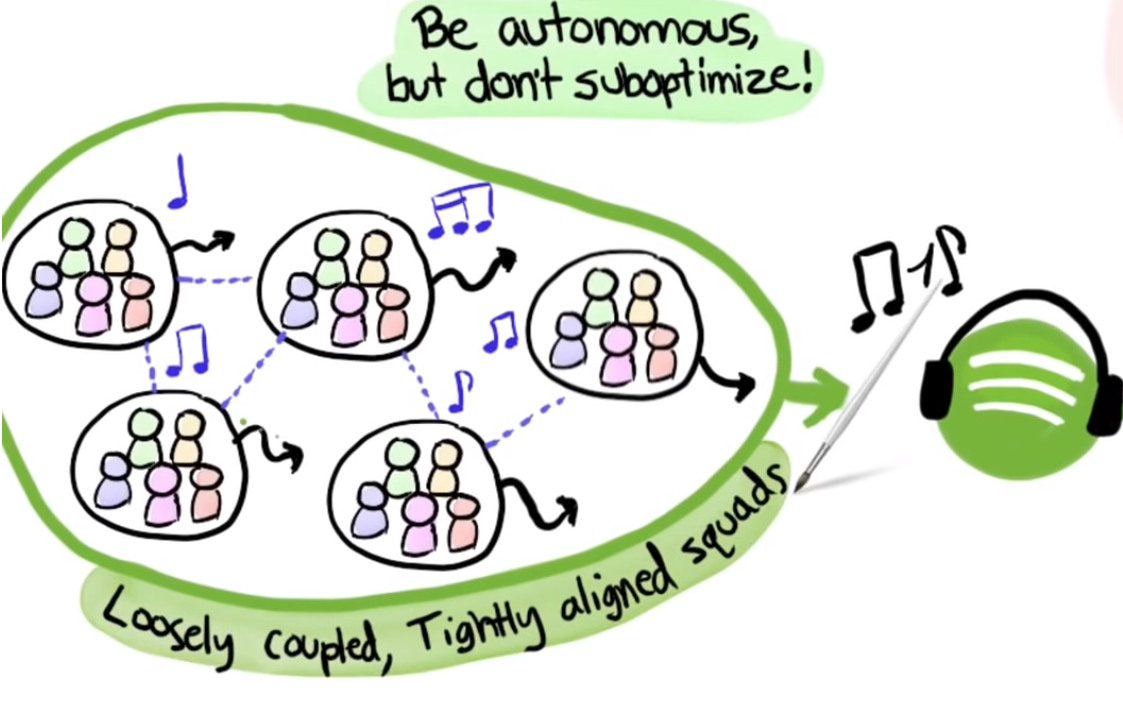 Be autonomous,
but don't suboptimize!
Loosely coupled, Tightly aligned squads